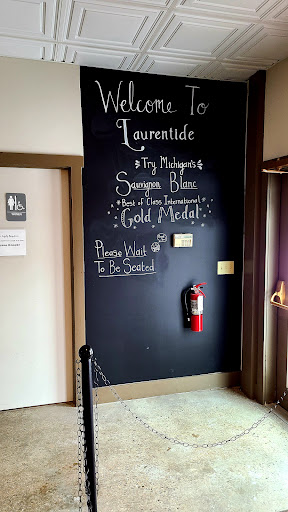 Welcome To
Laurentide
Try Michigan's
Sauvignon Blanc
Best of Class International
Gold Medal
Please Wait
To Be Seated